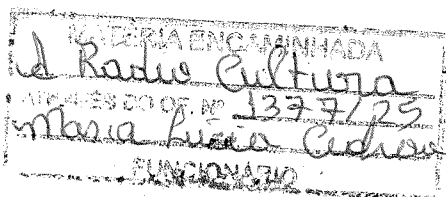 MATÉRIA ENCAMINHADA
A Radio Cultura
ATRAVÉS DO OF. Nº 1377/25
Maria Lúcia
FUNCIONÁRIO